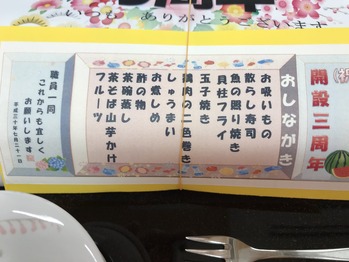 いつも ありがとうございます
(祝)
開設三周年
おしながき
お吸いもの
散らし寿司
魚の照り焼き
貝柱フライ
玉子焼き
鶏肉の二色巻き
しゅうまい
お煮しめ
酢の物
茶碗蒸し
茶そば山芋かけ
フルーツ
職員一同
これからも宜しく
お願いします
平成三十年七月三十一日